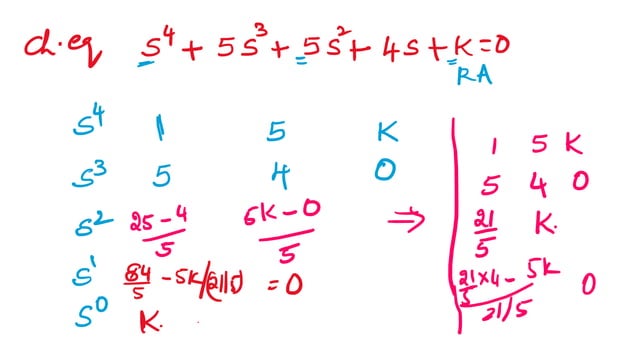 ch.eq S⁴ + 5S³ + 5S² + 4S + K = 0
RA
S⁴ 1 5 K
S³ 5 4 0
S² 25 - 4 / 5 5K - 0 / 5 ⇒
S¹ 84/5 - 5K/(21/5) = 0
S⁰ K.
1 5 K
5 4 0
21/5 K.
21/5 × 4 - 5K / 21/5 0